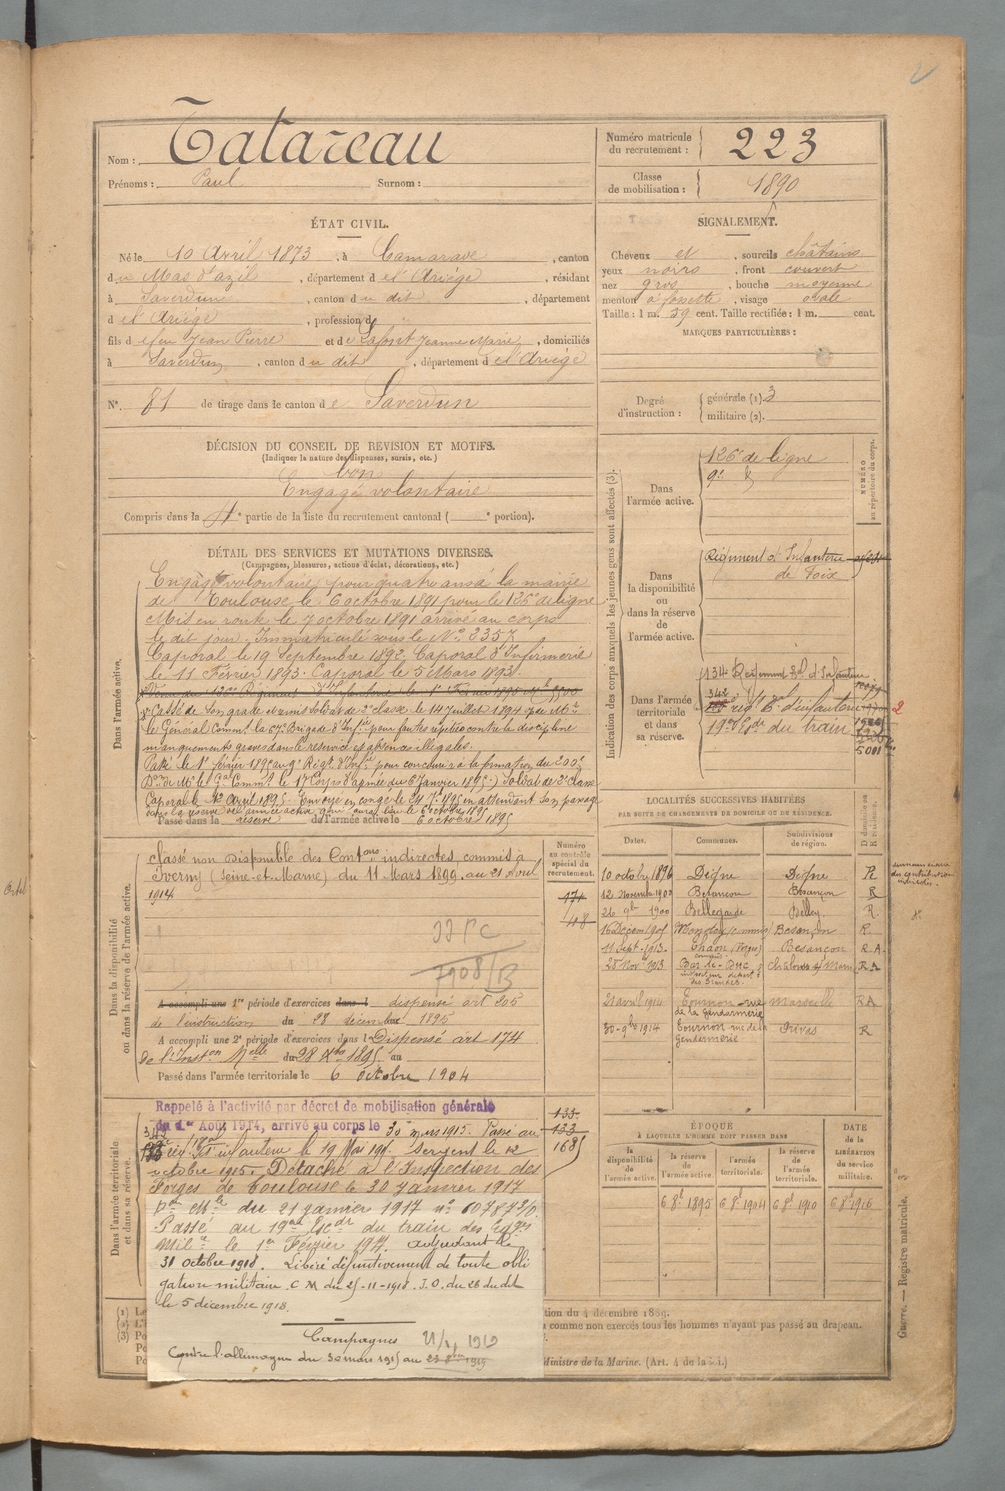 Nom : Tatareau
Prénoms : Paul Surnom :
Numéro matricule du recrutement : 223
Classe de mobilisation : 1890
ÉTAT CIVIL.
Né le 10 Avril 1873, à Camarade, canton
du Mas d'azil, département de l'Ariège, résidant
à Saverdun, canton du dit, département
de l'Ariège, profession d
fils de feu Jean Pierre et de Lafont Jeanne Marie, domiciliés
à Saverdun, canton du dit, département de l'Ariège
N° 81 de tirage dans le canton de Saverdun
SIGNALEMENT.
Cheveux et, sourcils châtains
yeux noirs, front couvert
nez gros, bouche moyenne
menton à fossette, visage ovale
Taille : 1 m. 59 cent. Taille rectifiée : 1 m. cent.
MARQUES PARTICULIÈRES :
Degré d'instruction : générale (1). 3
militaire (2).
DÉCISION DU CONSEIL DE REVISION ET MOTIFS.
(Indiquer la nature des dispenses, sursis, etc.)
bon
Engagé volontaire
Compris dans la 4e partie de la liste du recrutement cantonal ( e portion).
DÉTAIL DES SERVICES ET MUTATIONS DIVERSES.
(Campagnes, blessures, actions d'éclat, décorations, etc.)
Dans l'armée active.
Engagé volontaire pour quatre ans à la mairie
de Toulouse le 6 octobre 1891 pour le 126e de ligne
Mis en route le 7 octobre 1891 arrivé au corps
le dit jour. Immatriculé sous le No 2357
Caporal le 19 Septembre 1892. Caporal d'Infirmerie
le 11 Février 1893. Caporal le 5 Mars 1893.
Cassé de son grade et remis soldat de 2e classe le 14 Juillet 1894
le Général Commt la Brigade d'Infie pour fautes répétées contre la discipline
manquements graves dans le service et absences illégales.
Passé le 1er février 1895 au 9e Régt d'Infie pour concourir à la formation du 200e
Commt le 17e Corps d'armée du 6 Janvier 1895.) Soldat de 2e classe
Caporal le 12 Avril 1895. Envoyé en congé le 1895 en attendant son passage
Passé dans la réserve de l'armée active le 6 octobre 1895
Indication des corps auxquels les jeunes gens sont affectés (3).
NUMÉRO au répertoire du corps.
Dans l'armée active.
126e de ligne
9e d
Dans la disponibilité ou dans la réserve de l'armée active.
Régiment d'Infanterie
de Foix
Dans l'armée territoriale et dans sa réserve.
134 Régiment Tal d'Infanterie
342
rég d'infanterie
19e Esdr du train
5001
2
LOCALITÉS SUCCESSIVES HABITÉES
PAR SUITE DE CHANGEMENTS DE DOMICILE OU DE RÉSIDENCE.
Dates. Communes. Subdivisions de région. D domicile ou R résidence.
10 octobre 1896 Digne Digne R
12 Novemb 1900 Besançon Besançon R
26 9bre 1900 Bellegarde Belley R.
16 Décem 1901 Besançon R.
11 Sept. 1913. Thaon (Vosges) Besançon R.A.
28 Nov 1913 Bar-le-Duc Châlons s/ Marne R.A
21 avril 1914 Tournon rue de la Gendarmerie Marseille R A
30-9bre 1914 Tournon rue de la Gendarmerie Privas R
Dans la disponibilité ou dans la réserve de l'armée active.
Numéro au contrôle spécial du recrutement.
classé non Disponible des Contons indirectes, commis à
Iverny (Seine-et-Marne) du 11 Mars 1899 au 21 avril
1914
174
7908/B
A accompli une 1re période d'exercices dans l dispensé art 205
de l'instruction du 28 décembre 1895
A accompli une 2e période d'exercices dans l Dispensé art 174
de l'Inston Melle du 28 Xbre 1895 au
Passé dans l'armée territoriale le 6 octobre 1904
Dans l'armée territoriale et dans sa réserve.
Rappelé à l'activité par décret de mobilisation générale
du 1er Août 1914, arrivé au corps le 30 mars 1915. Passé au
133
133
1685
infanterie le 19 Mai 191 . Sergent le 12
octobre 1915. Détaché à l'Inspection des
Forges de Toulouse le 30 janvier 1917
du 21 janvier 1917 no 60787
Passé au 19me Escdr du train des Eqges
Milre le 1er Février 1917. Adjudant le
31 octobre 1918. Libéré définitivement de toute obli
gation militaire. C M du 25-11-1918. J.O. du 28 du dit
le 5 décembre 1918.
Campagnes
Contre l'allemagne du 30 mars 1915 au 1919
ÉPOQUE À LAQUELLE L'HOMME DOIT PASSER DANS
la disponibilité de l'armée active. la réserve de l'armée active. l'armée territoriale. la réserve de l'armée territoriale.
DATE de la LIBÉRATION du service militaire.
6 8bre 1895 6 8bre 1904 6 8bre 1910 6 8bre 1916
tion du 4 décembre 1889.
comme non exercés tous les hommes n'ayant pas passé au drapeau.
Ministre de la Marine. (Art. 4 de la loi.)
Guerre. — Registre matricule.